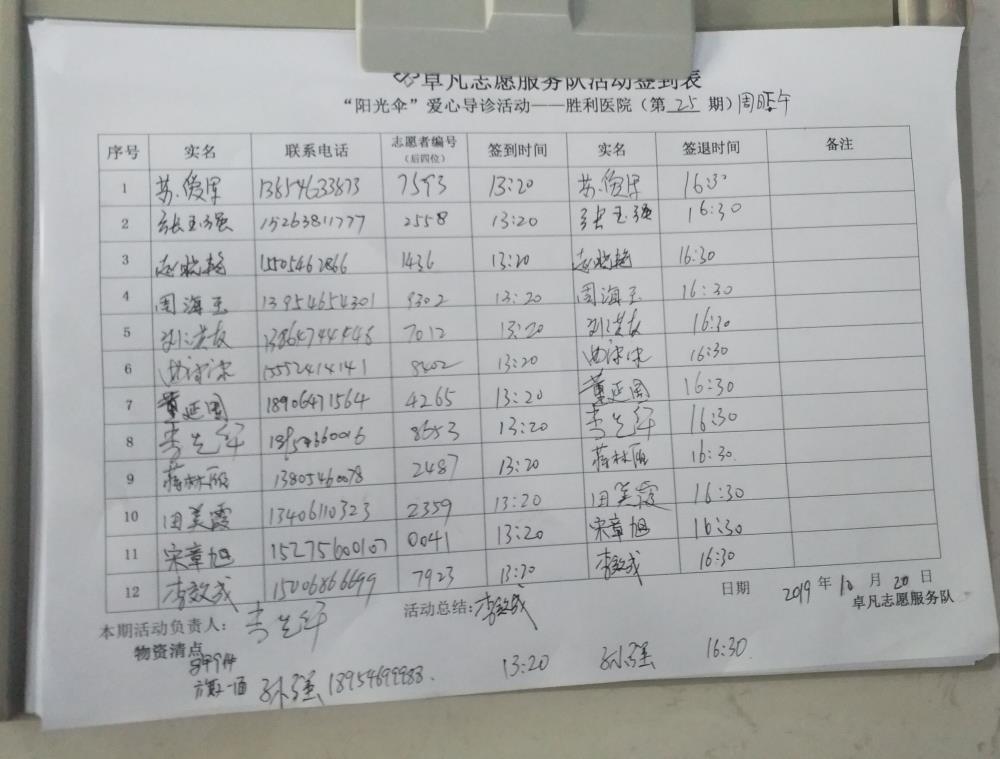 卓凡志愿服务队活动签到表
“阳光伞”爱心导诊活动——胜利医院（第 25 期）周日下午
序号 实名 联系电话 志愿者编号（后四位） 签到时间 实名 签退时间 备注
1 苏俊军 13854633873 7593 13:20 苏俊军 16:30
2 张玉强 15263811777 2558 13:20 张玉强 16:30
3 赵晓梅 15505462866 1436 13:20 赵晓梅 16:30
4 周海玉 13954654301 9302 13:20 周海玉 16:30
5 刘洪友 13864744448 7012 13:20 刘洪友 16:30
6 15552414141 8402 13:20 16:30
7 董延国 18906471564 4265 13:20 董延国 16:30
8 李先军 8653 13:20 李先军 16:30
9 蒋林丽 13805460078 2487 13:20 蒋林丽 16:30
10 田美霞 13406110323 2359 13:20 田美霞 16:30
11 宋章旭 15275600107 0041 13:20 宋章旭 16:30
12 李效成 15006866699 7923 13:20 李效成 16:30
日期 2019 年 10 月 20 日
本期活动负责人： 李先军 活动总结：李效成 卓凡志愿服务队
物资清点
马甲9件
旗子一面 孙强 18954699983. 13:20 孙强 16:30